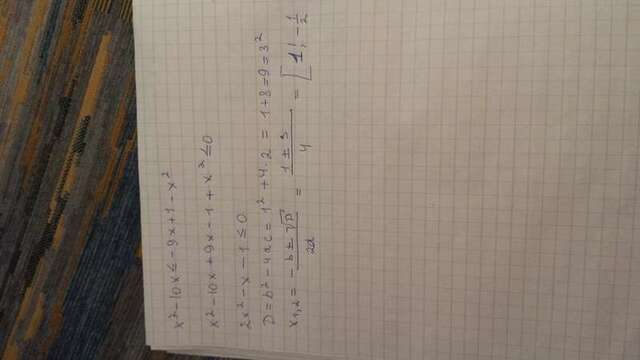 x² - 10x ≤ - 9x + 1 - x²
x² - 10x + 9x - 1 + x² ≤ 0
2x² - x - 1 ≤ 0
D = b² - 4ac = 1² + 4·2 = 1 + 8 = 9 = 3²
x₁,₂ = -b ± √D / 2a = 1 ± 3 / 4 = [ 1; - 1/2